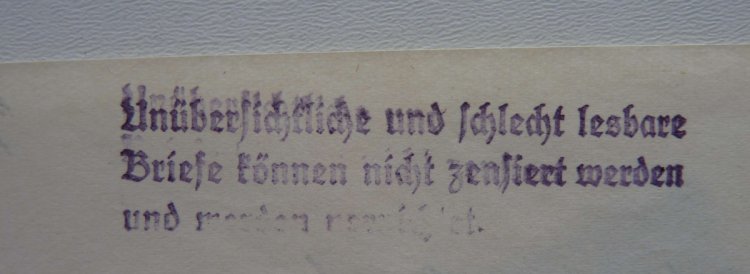 Unübersichtliche und schlecht lesbare
Briefe können nicht zensiert werden
und werden vernichtet.